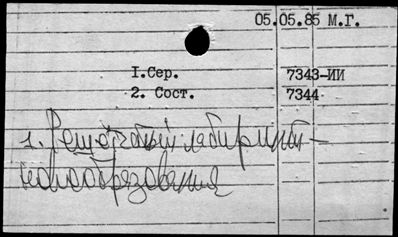 05.05.85 М.Г.
I.Сер. 7343-ИИ
2. Сост. 7344
1. Решётчатый лабиринт-
новообразования